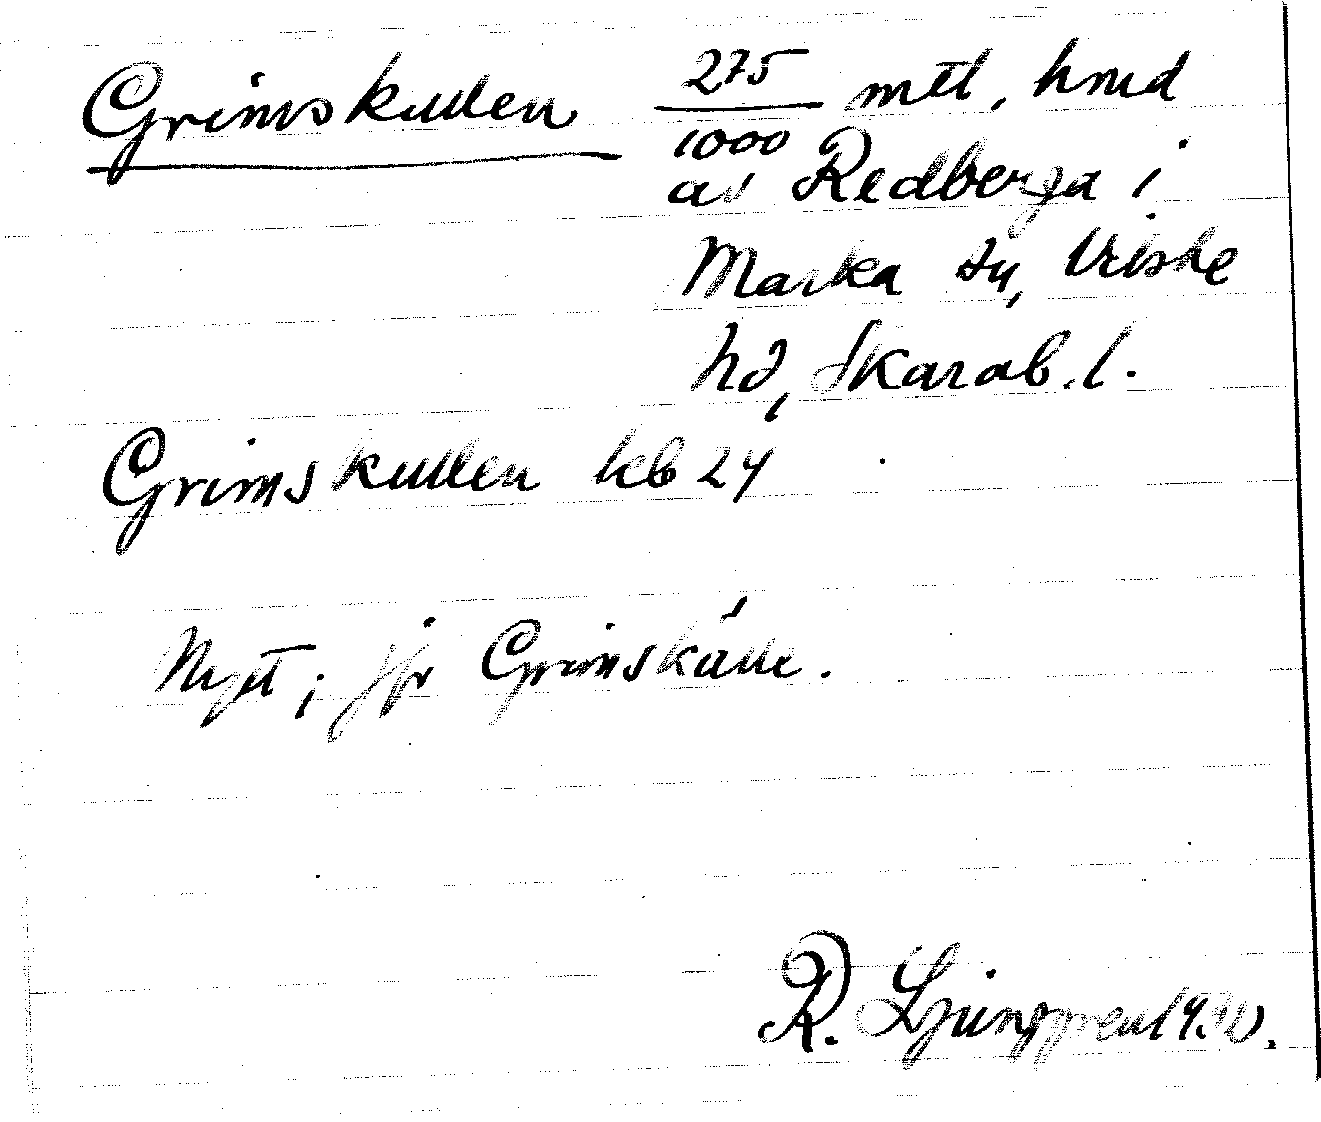 Grimskullen 275/1000 mtl, hmd
av Redberga i
Marka sn, Vilske
hd, Skarab. l.
Grimskullen kb 24
Nytt; jfr Grimskälle.
R. Ljunggren